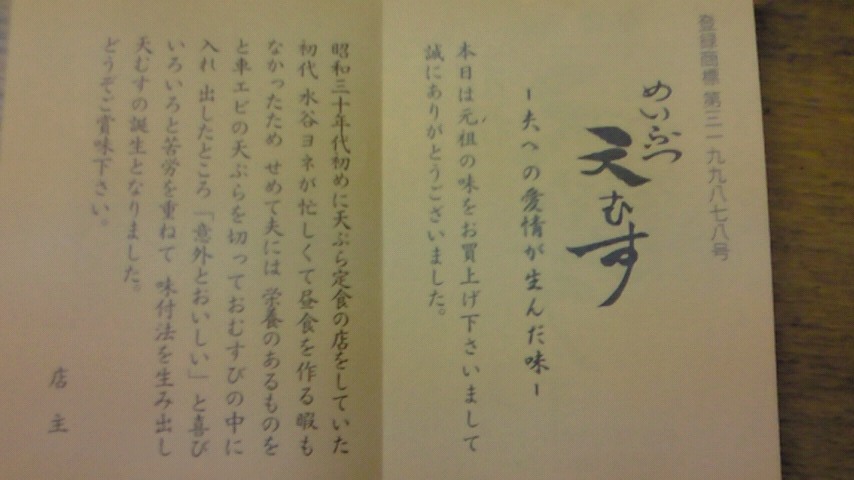 登録商標 第三一九九八七八号
めいぶつ
天むす
ー夫への愛情が生んだ味ー
本日は元祖の味をお買上げ下さいまして
誠にありがとうございました。
昭和三十年代初めに天ぷら定食の店をしていた
初代 水谷ヨネが忙しくて昼食を作る暇も
なかったため せめて夫には 栄養のあるものを
と車エビの天ぷらを切っておむすびの中に
入れ 出したところ「意外とおいしい」と喜び
いろいろと苦労を重ねて 味付法を生み出し
天むすの誕生となりました。
どうぞご賞味下さい。
店主